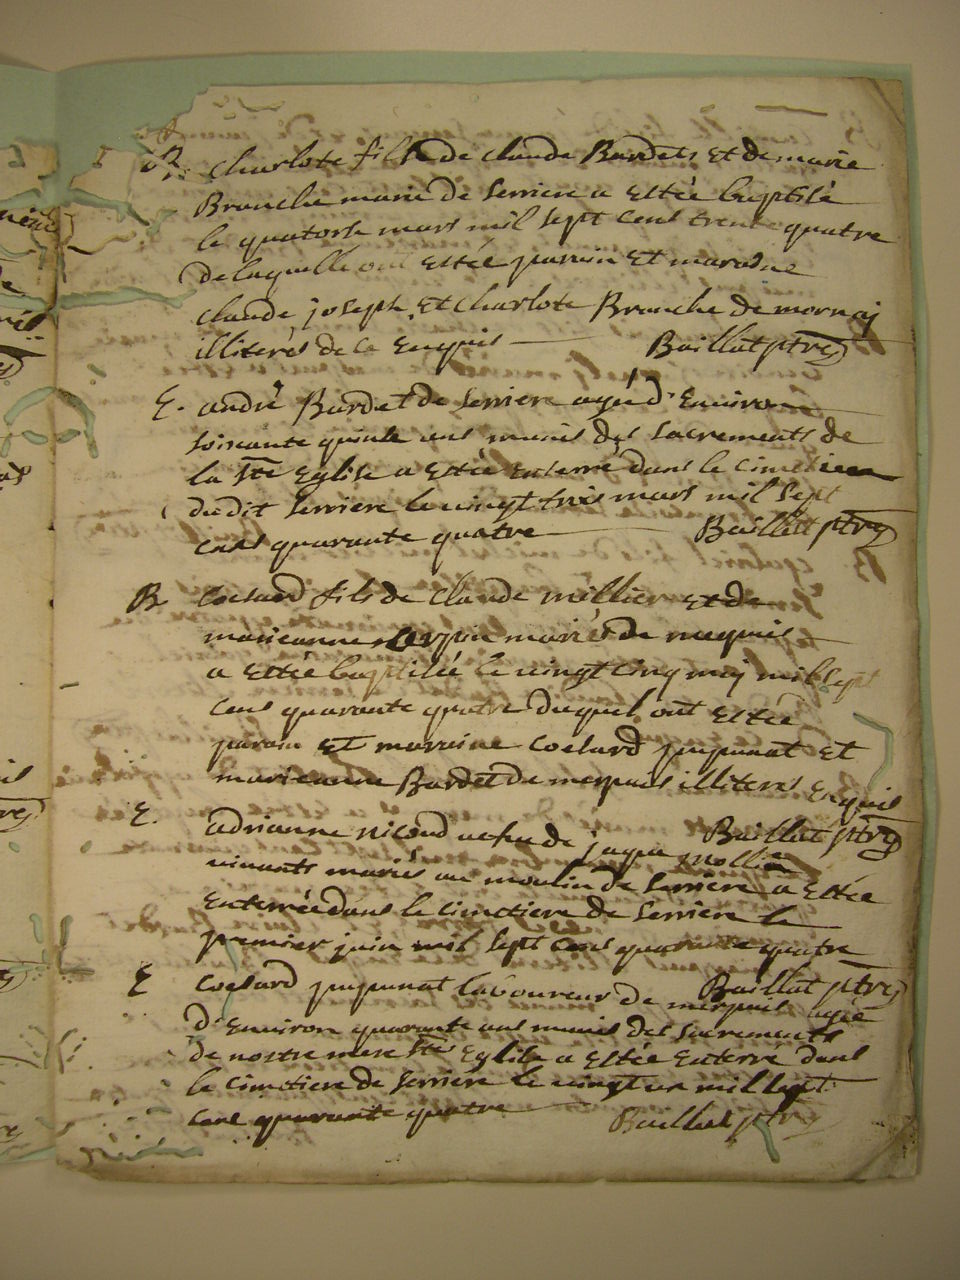 B. Charlote fille de claude Bardets et de marie
Branche marié de Serriere a estée baptisée
le quatorse mars mil sept cens trente quatre
de laquelle ont estée parain et maraine
claude joseph et Charlote Branche de mornaj
illiterés de ce Enquis Baillat ptre
E. andré Bardet de Serriere agé d'Environ
soixante quinse ans munis des sacrements de
la Ste Eglise a estée enterré dans le cimetiere
du dit Serriere le vingt trois mars mil sept
cens quarante quatre Baillat ptre
B Coelard fils de Claude millier et de
marieanne mariés de
a estée baptisée le vingt cinq maj mil sept
cens quarante quatre duquel ont estée
parain et maraine Coelard et
marieanne Bardet de illiterés Enquis
Baillat ptre
E. adrianne nicoud de jaque
vivants mariés au moulin de Serriere a estée
Enterrée dans le cimetiere de Serriere le
premier juin mil sept cens quarante quatre
Baillat ptre
E Coelard laboureur de agé
d'Environ quarante ans munis des sacrements
de nostre mere Ste Eglise a estée Enterré dans
le cimetiere de Serriere le vingt un mil sept
cens quarante quatre Baillat ptre